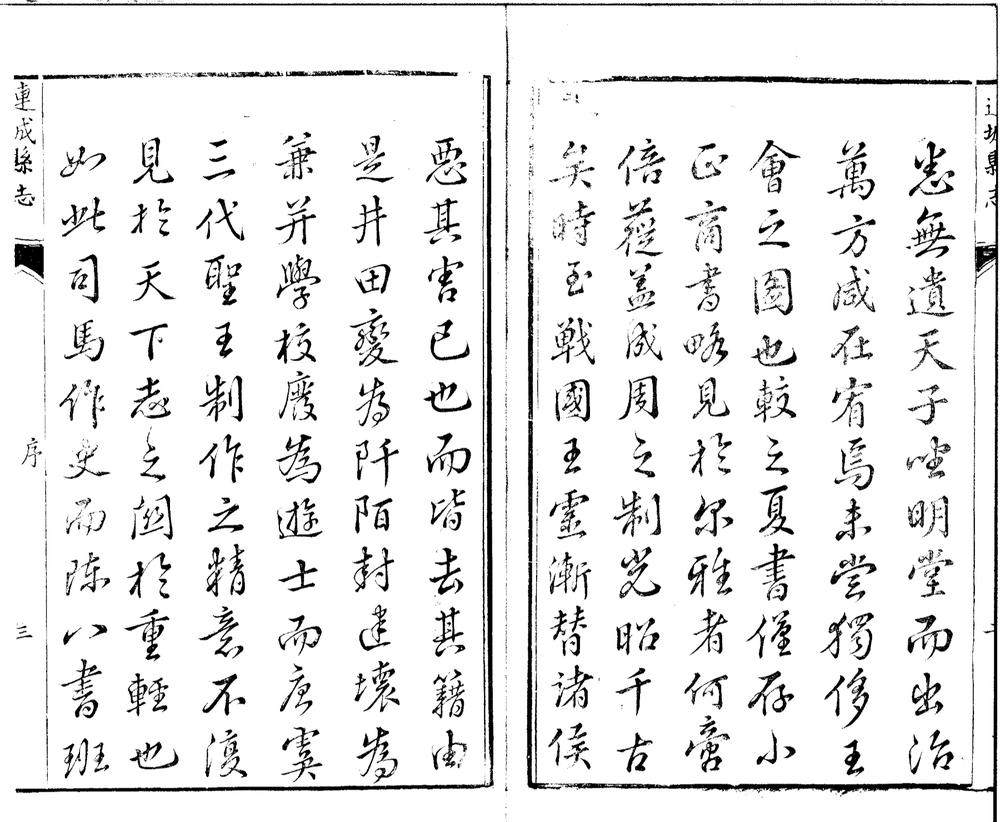 悉無遺天子坐明堂而出治
萬方咸在宥焉未嘗獨侈王
會之圖也較之夏書僅存小
正商書略見於尔雅者何啻
倍蓰盖成周之制光昭千古
矣時至戰國王靈漸替諸侯
惡其害已也而皆去其籍由
是井田變為阡陌封建壞為
兼并學校廢為遊士而唐虞
三代聖王制作之精意不復
見於天下志之関於重輕也
如此司馬作史而陳八書班
連成縣志
序
三